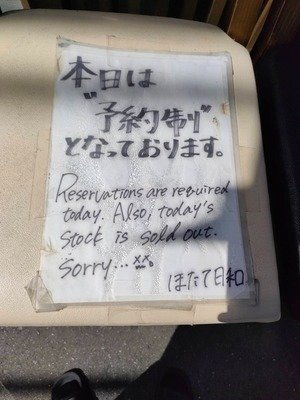 本日は
"予約制"
となっております。
Reservations are required
today. Also, today's
stock is sold out.
Sorry... xx
ほたて日和